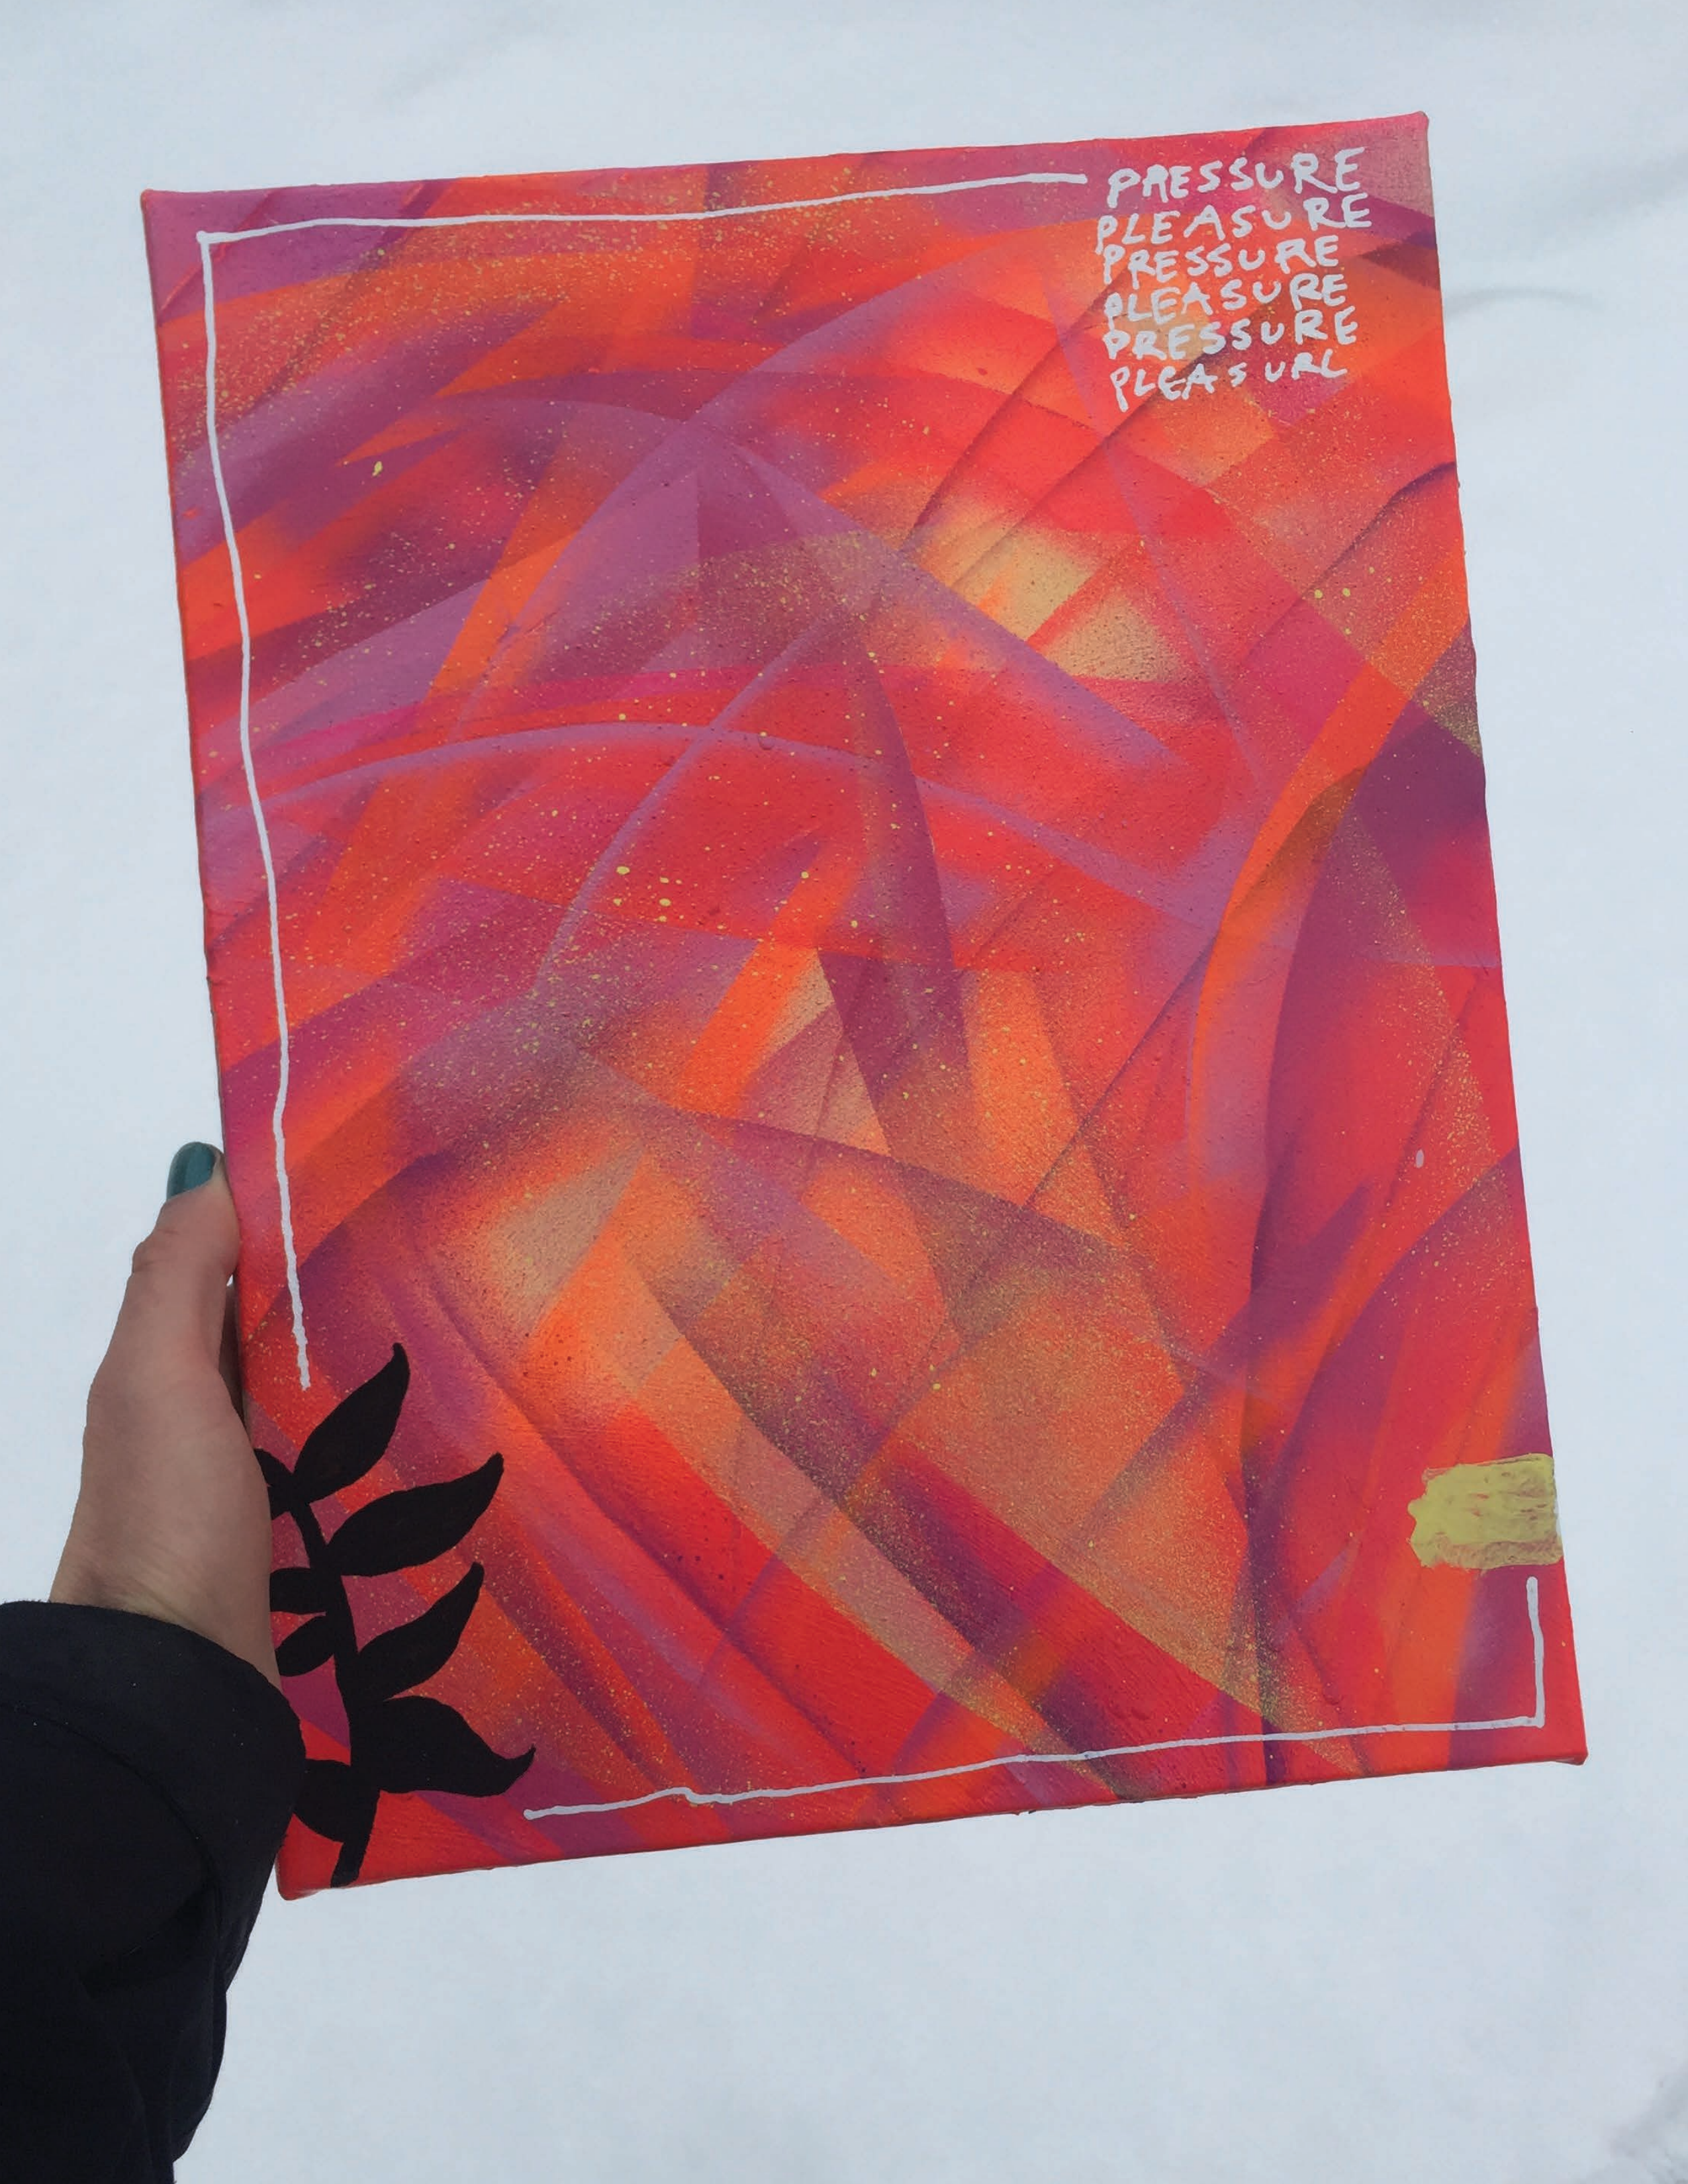 PRESSURE
PLEASURE
PRESSURE
PLEASURE
PRESSURE
PLEASURE